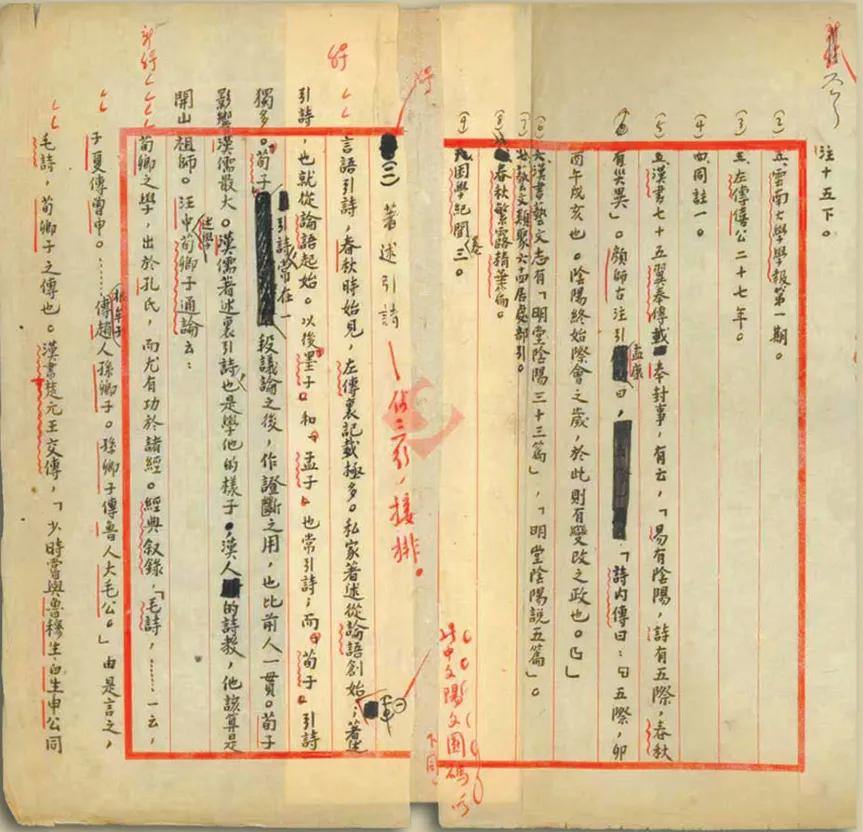 注十五下。
(2) 雲南大學學報第一期。
(3) 左傳僖公二十七年。
(4) 同註一。
(5) 漢書七十五翼奉傳載奉封事,有云,「易有陰陽,詩有五際,春秋
有災異」。顏師古注引孟康曰,「詩內傳曰:『五際,卯
酉午戌亥也。陰陽終始際會之歲,於此則有變改之政也。』」
(6) 漢書藝文志有「明堂陰陽三十三篇」,「明堂陰陽說五篇」。
(7) 藝文類聚六十四居處部引。
(8) 春秋繁露精華篇。
(9) 困學紀聞卷三。
此中文陽文圈碼
下同
(二)著述引詩
佔三行,接排。
言語引詩,春秋時始見,左傳裏記載極多。私家著述從論語創始;著述
引詩,也就從論語起始。以後墨子和孟子也常引詩;而荀子引詩
獨多。荀子引詩常在一段議論之後,作證斷之用,也比前人一貫。荀子
影響漢儒最大。漢儒著述裏引詩也是學他的樣子,漢人的詩教,他該算是
開山祖師。汪中述學荀卿子通論云:
荀卿之學,出於孔氏,而尤有功於諸經。經典敘錄,「毛詩,……一云,
子夏傳曾申。……根牟子傳趙人孫卿子。孫卿子傳魯人大毛公。」由是言之,
毛詩,荀卿子之傳也。漢書楚元王交傳,「少時嘗與魯穆生白生申公同